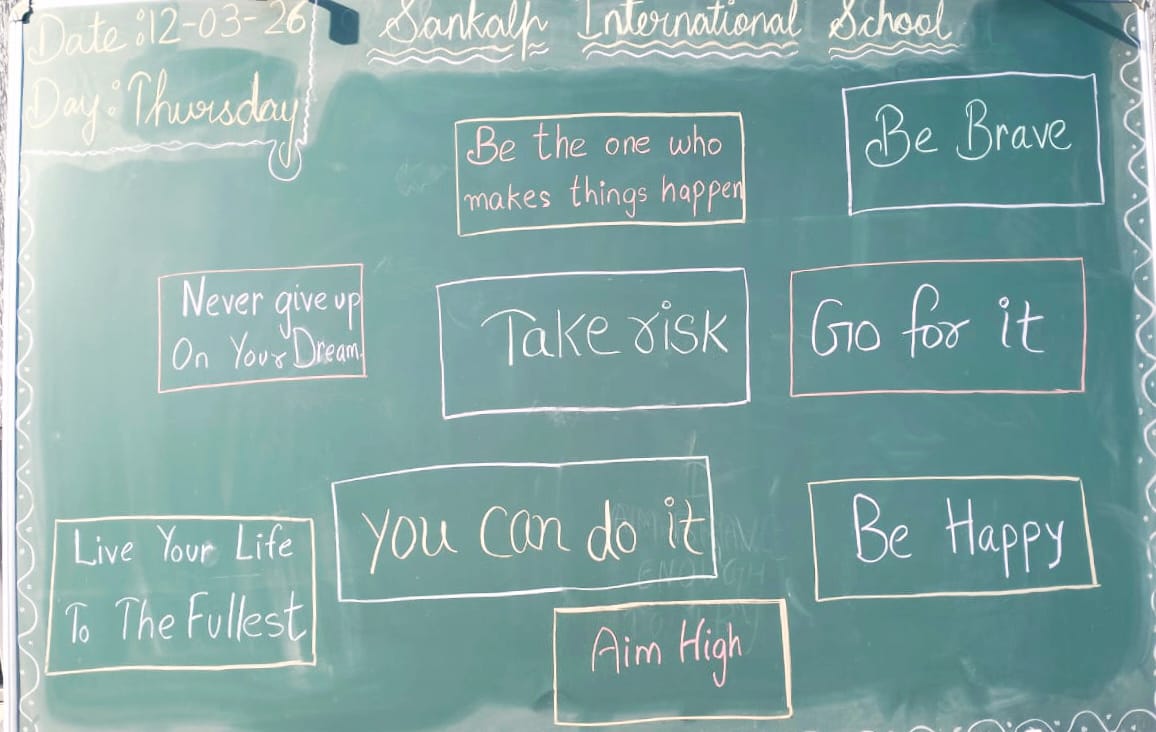 Date : 12-03-26
Day : Thursday
Sankalp International School
Be the one who
makes things happen
Be Brave
Never give up
On Your Dream.
Take risk
Go for it
Live Your Life
To The Fullest
You can do it
Be Happy
Aim High